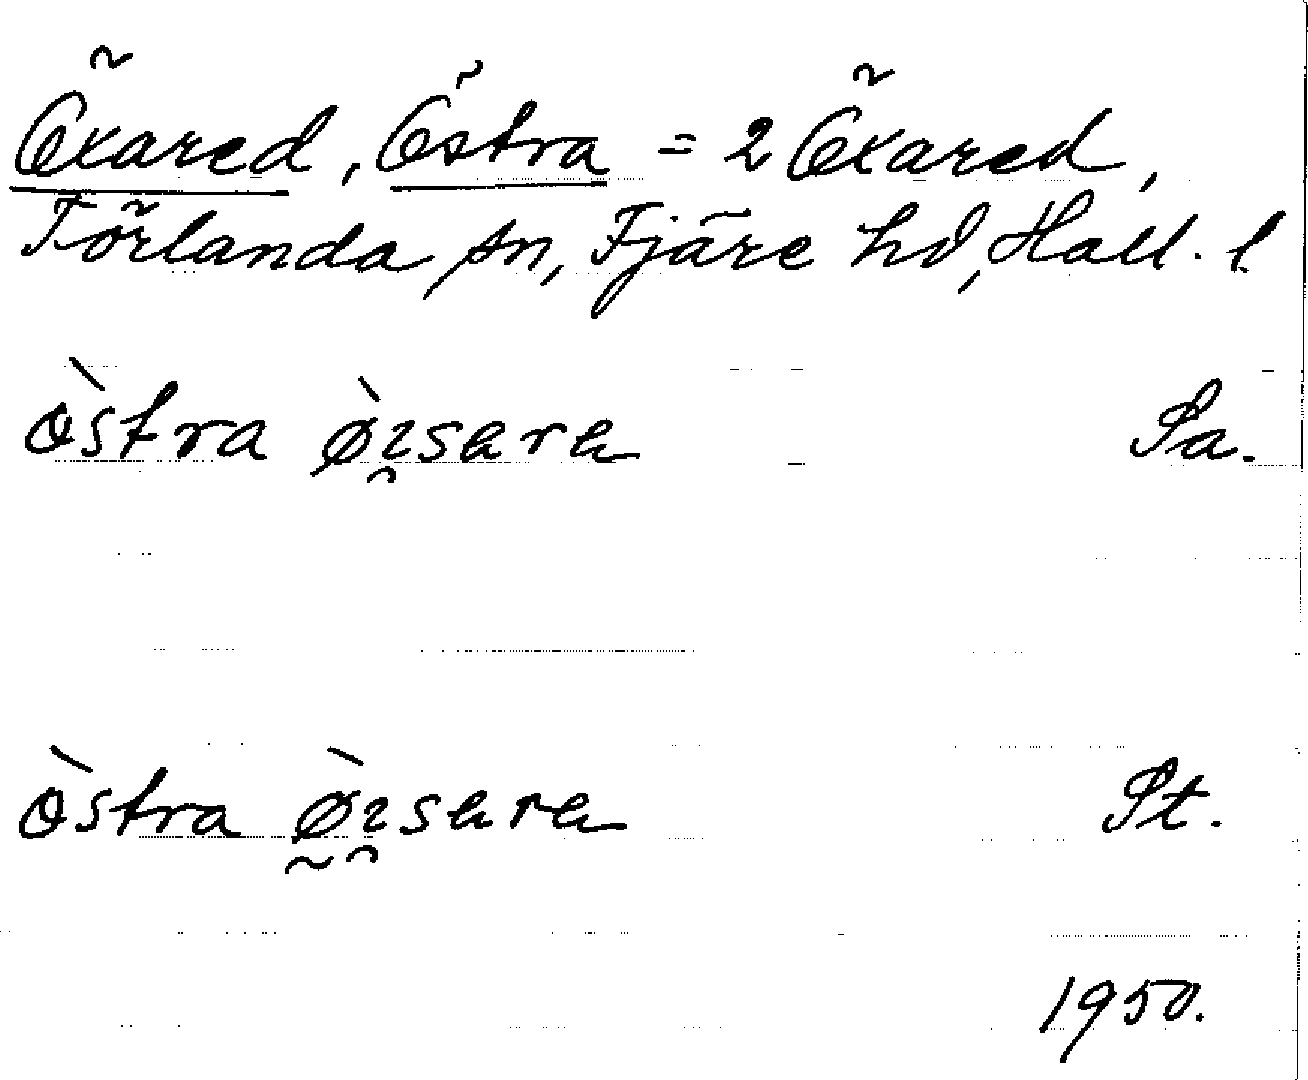 Öxared, Östra = 2 Öxared,
Förlanda sn, Fjäre hd, Hall. l.
òstra ø̀ısara Sa.
òstra ø̀ısara St.
1950.